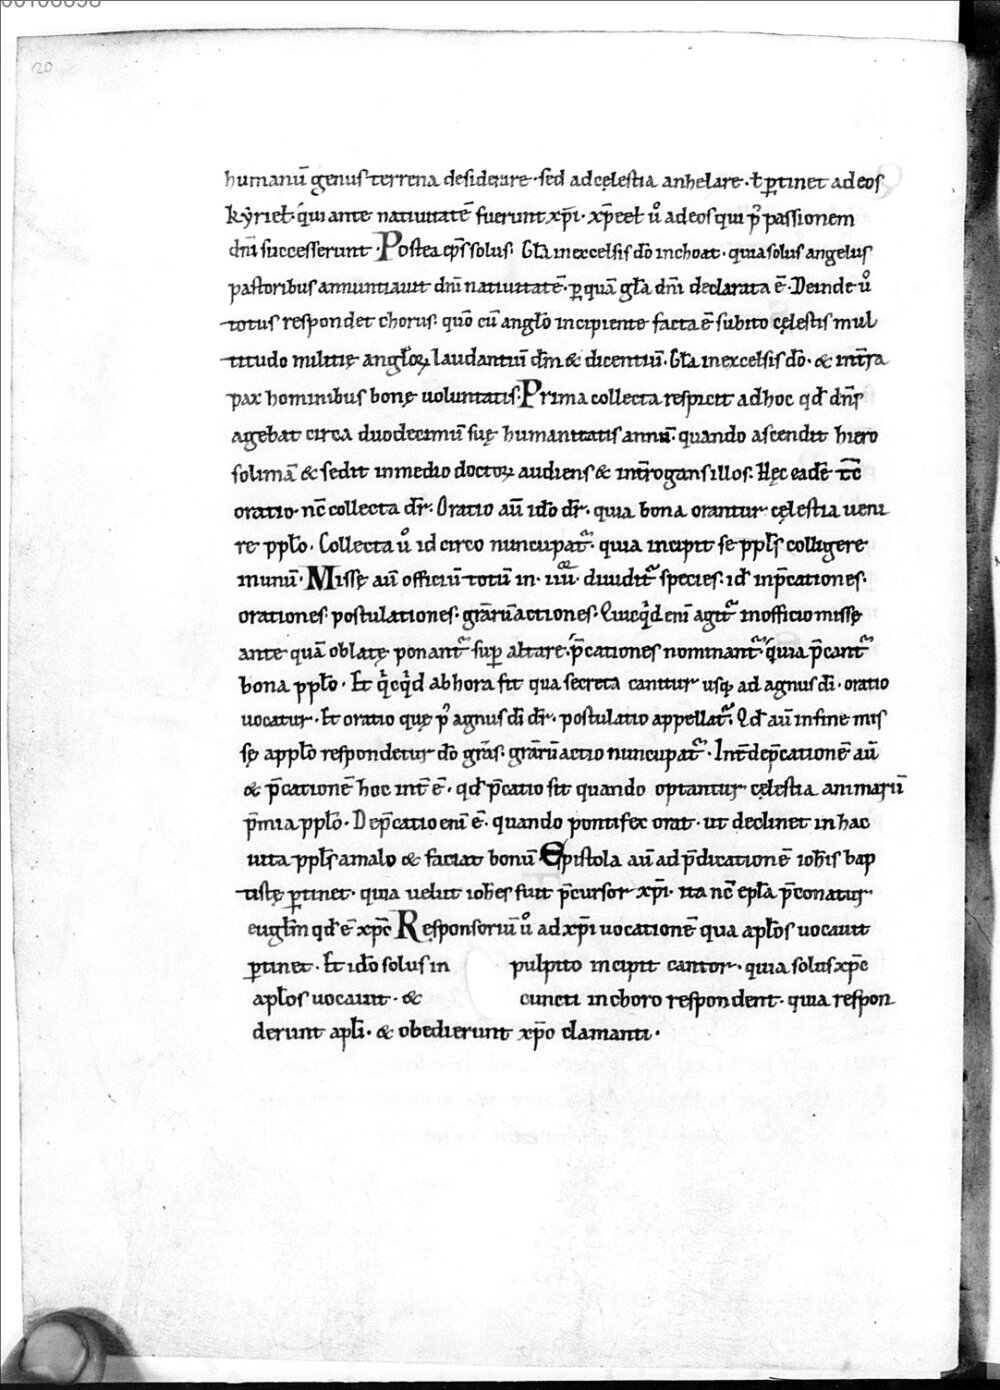 20
humanū genus terrena desiderare · sed ad cęlestia anhelare · ł ꝑtinet ad eos
kyrieł · q̇ui ante natiuitatē fuerunt xp̄i · xp̄eeł u̇ ad eos qui p̓ passionem
dn̄i successerunt · Postea ep̄s solus · Gła in excelsis dō inchoat · quia solus angelus
pastoribus annuntiauit dn̄i natiuitatē · ꝑ quā gła dn̄i declarata ē · Deinde u̇
totus respondet chorus · quō cū angło incipiente facta ē subito cęlestis mul
titudo militię angłoꝝ laudantiū dm̄ & dicentiū · Gła in excelsis dō · & in t̄ra
pax hominibus bonę uoluntatis · Prima collecta respicit ad hoc qđ dn̄s
agebat circa duodecimū suę humanitatis annū · quando ascendit hiero
solimā & sedit in medio doctoꝝ audiens & int̄rogans illos · Hęc eadē
oratio · nc̄ collecta dr̄ · Oratio aū idō dr̄ · quia bona orantur cęlestia ueni
re ppło · Collecta u̇ id circo nuncupat᷑ · quia incipit se ppłs colligere
in unū · Missę aū officiū totū in · iiii · diuidit᷑ species · id ÷ in p̄cationes ·
orationes · postulationes · grārū actiones · Quicq̇d eni agit᷑ in officio missę
ante quā oblatę ponant᷑ sup altare · p̄cationes nominant᷑ · quia p̄cant᷑
bona ppło · Et q̇cq̇d ab hora fit qua secreta canitur usq; ad agnus dī · oratio
uocatur · Et oratio quę p̓ agnus dī dr̄ · postulatio appellat᷑ · Qđ aū in fine mis
sę a ppło respondetur dō grās · grārū actio nuncupat᷑ · Int̄ dep̄cationē aū
& p̄cationē hoc int̄ ē · qđ p̄catio fit quando optantur cęlestia animarū
p̄mia ppło · Dep̄catio eni ē · quando pontifex orat · ut declinet in hac
uita ppłs a malo & faciat bonū Epistola aū ad p̄dicationē ioħis bap
tistę ꝑtinet · quia uelut ioħes fuit p̄cursor xp̄i · ita nc̄ epła p̄conatur
eugłm qđ ē xp̄c Responsoriū u̇ ad xp̄i uocationē qua apłos uocauit
ꝑtinet · Et idō solus in pulpito incipit cantor · quia solus xp̄c
apłos uocauit · & cuncti in choro respondent · quia respon
derunt apłi · & obedierunt xp̄o clamanti ·